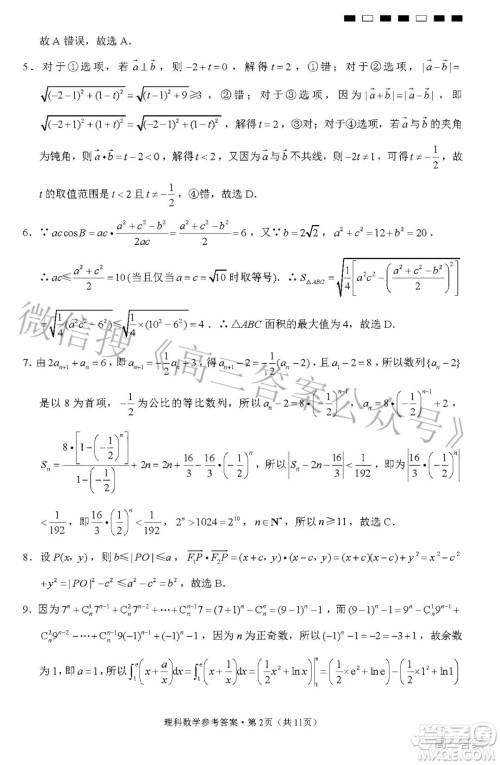 故 A 错误，故选 A．
5．对于①选项，若 a⃗⊥b⃗，则 −2+t=0，解得 t=2，①错；对于②选项，|a⃗−b⃗|=
√((−2−1)²+(1−t)²)=√((t−1)²+9)≥3，②错；对于③选项，因为 |a⃗+b⃗|=|a⃗−b⃗|，即
√((−2+1)²+(1+t)²)=√((−2−1)²+(1−t)²)，解得 t=2，③错；对于④选项，若 a⃗与b⃗ 的夹角
为钝角，则 a⃗•b⃗=t−2<0，解得 t<2，又因为 a⃗与b⃗ 不共线，则 −2t≠1，可得 t≠−1/2，故
t 的取值范围是 t<2 且 t≠−1/2，④错，故选 D．
6．∵ accosB=ac•(a²+c²−b²)/2ac=(a²+c²−b²)/2=6，又∵b=2√2，a²+c²=12+b²=20．
∴ac≤(a²+c²)/2=10(当且仅当 a=c=√10 时取等号)．∴S△ABC=√(1/4[a²c²−((a²+c²−b²)/2)²]
=√(1/4(a²c²−6²))≤√(1/4×(10²−6²))=4．∴△ABC 面积的最大值为 4，故选 D．
7．由 2aₙ₊₁+aₙ=6，即 aₙ₊₁=−1/2aₙ+3，得 aₙ₊₁−2=−1/2(aₙ−2)，且 a₁−2=8，所以数列{aₙ−2}
是以 8 为首项，−1/2 为公比的等比数列，所以 aₙ−2=8•(−1/2)ⁿ⁻¹，所以 aₙ=8•(−1/2)ⁿ⁻¹+2，
Sₙ=8•[1−(−1/2)ⁿ]/(1−(−1/2))+2n=2n+16/3−16/3•(−1/2)ⁿ，所以|Sₙ−2n−16/3|<1/192，即为|16/3•(−1/2)ⁿ|
<1/192，即 16/3•(1/2)ⁿ<1/192，2ⁿ>1024=2¹⁰，n∈N*，所以 n≥11，故选 C．
8．设 P(x，y)，则 b≤|PO|≤a，F₁P⃗•F₂P⃗=(x+c，y)•(x−c，y)=(x+c)(x−c)+y²=x²
+y²−c²=|PO|²−c²≤a²−c²=b²，故选 B．
9．因为 7ⁿ+Cₙ¹7ⁿ⁻¹+Cₙ²7ⁿ⁻²+⋯+Cₙⁿ⁻¹7=(7+1)ⁿ−1=(9−1)ⁿ−1，而(9−1)ⁿ−1=9ⁿ−Cₙ¹9ⁿ⁻¹+
Cₙ²9ⁿ⁻²−⋯+Cₙⁿ⁻¹9(−1)ⁿ⁻¹+(−1)ⁿ−1，因为 n 为正奇数，所以(−1)ⁿ−1=−2=−3+1，故余数
为 1，即 a=1，所以∫₁ⁿ(x+a/x)dx=∫₁ⁿ(x+1/x)dx=(1/2x²+lnx)|₁ⁿ=(1/2×e²+lne)−(1/2×1²+ln1)
理科数学参考答案·第 2页（共 11页）
微信搜《高三答案公众号》